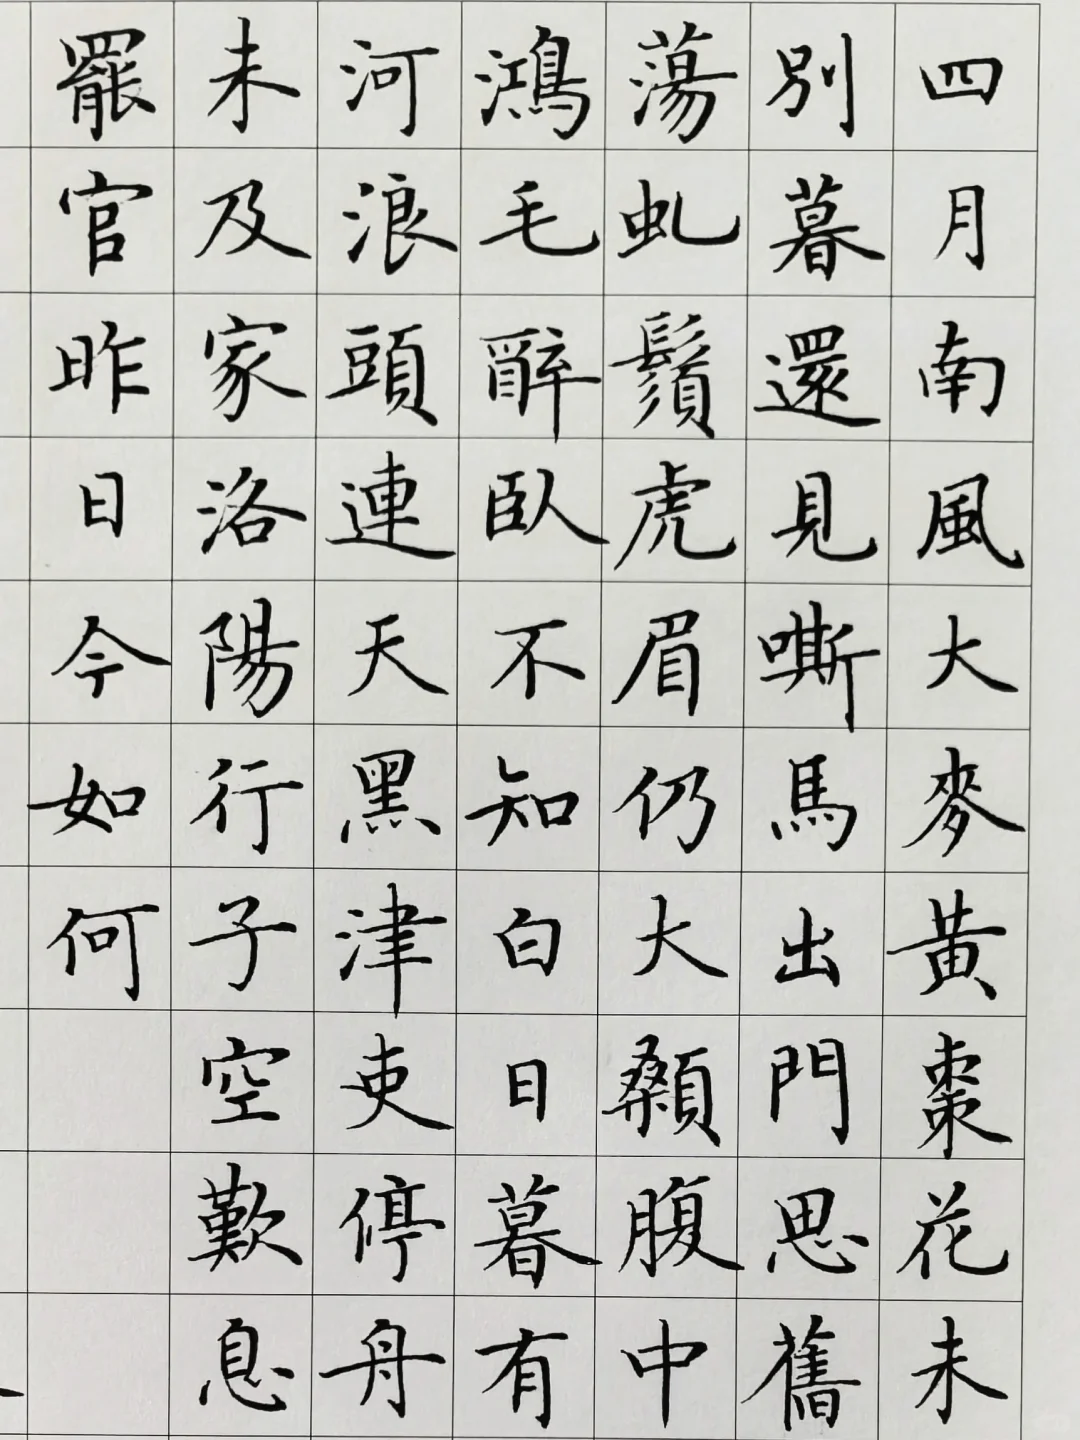 四月南風大麥黃棗花未
別暮還見嘶馬出門思舊
蕩虬鬚虎眉仍大顙腹中
鴻毛醉臥不知白日暮有
河浪頭連天黑津吏停舟
未及家洛陽行子空歎息
罷官昨日今如何